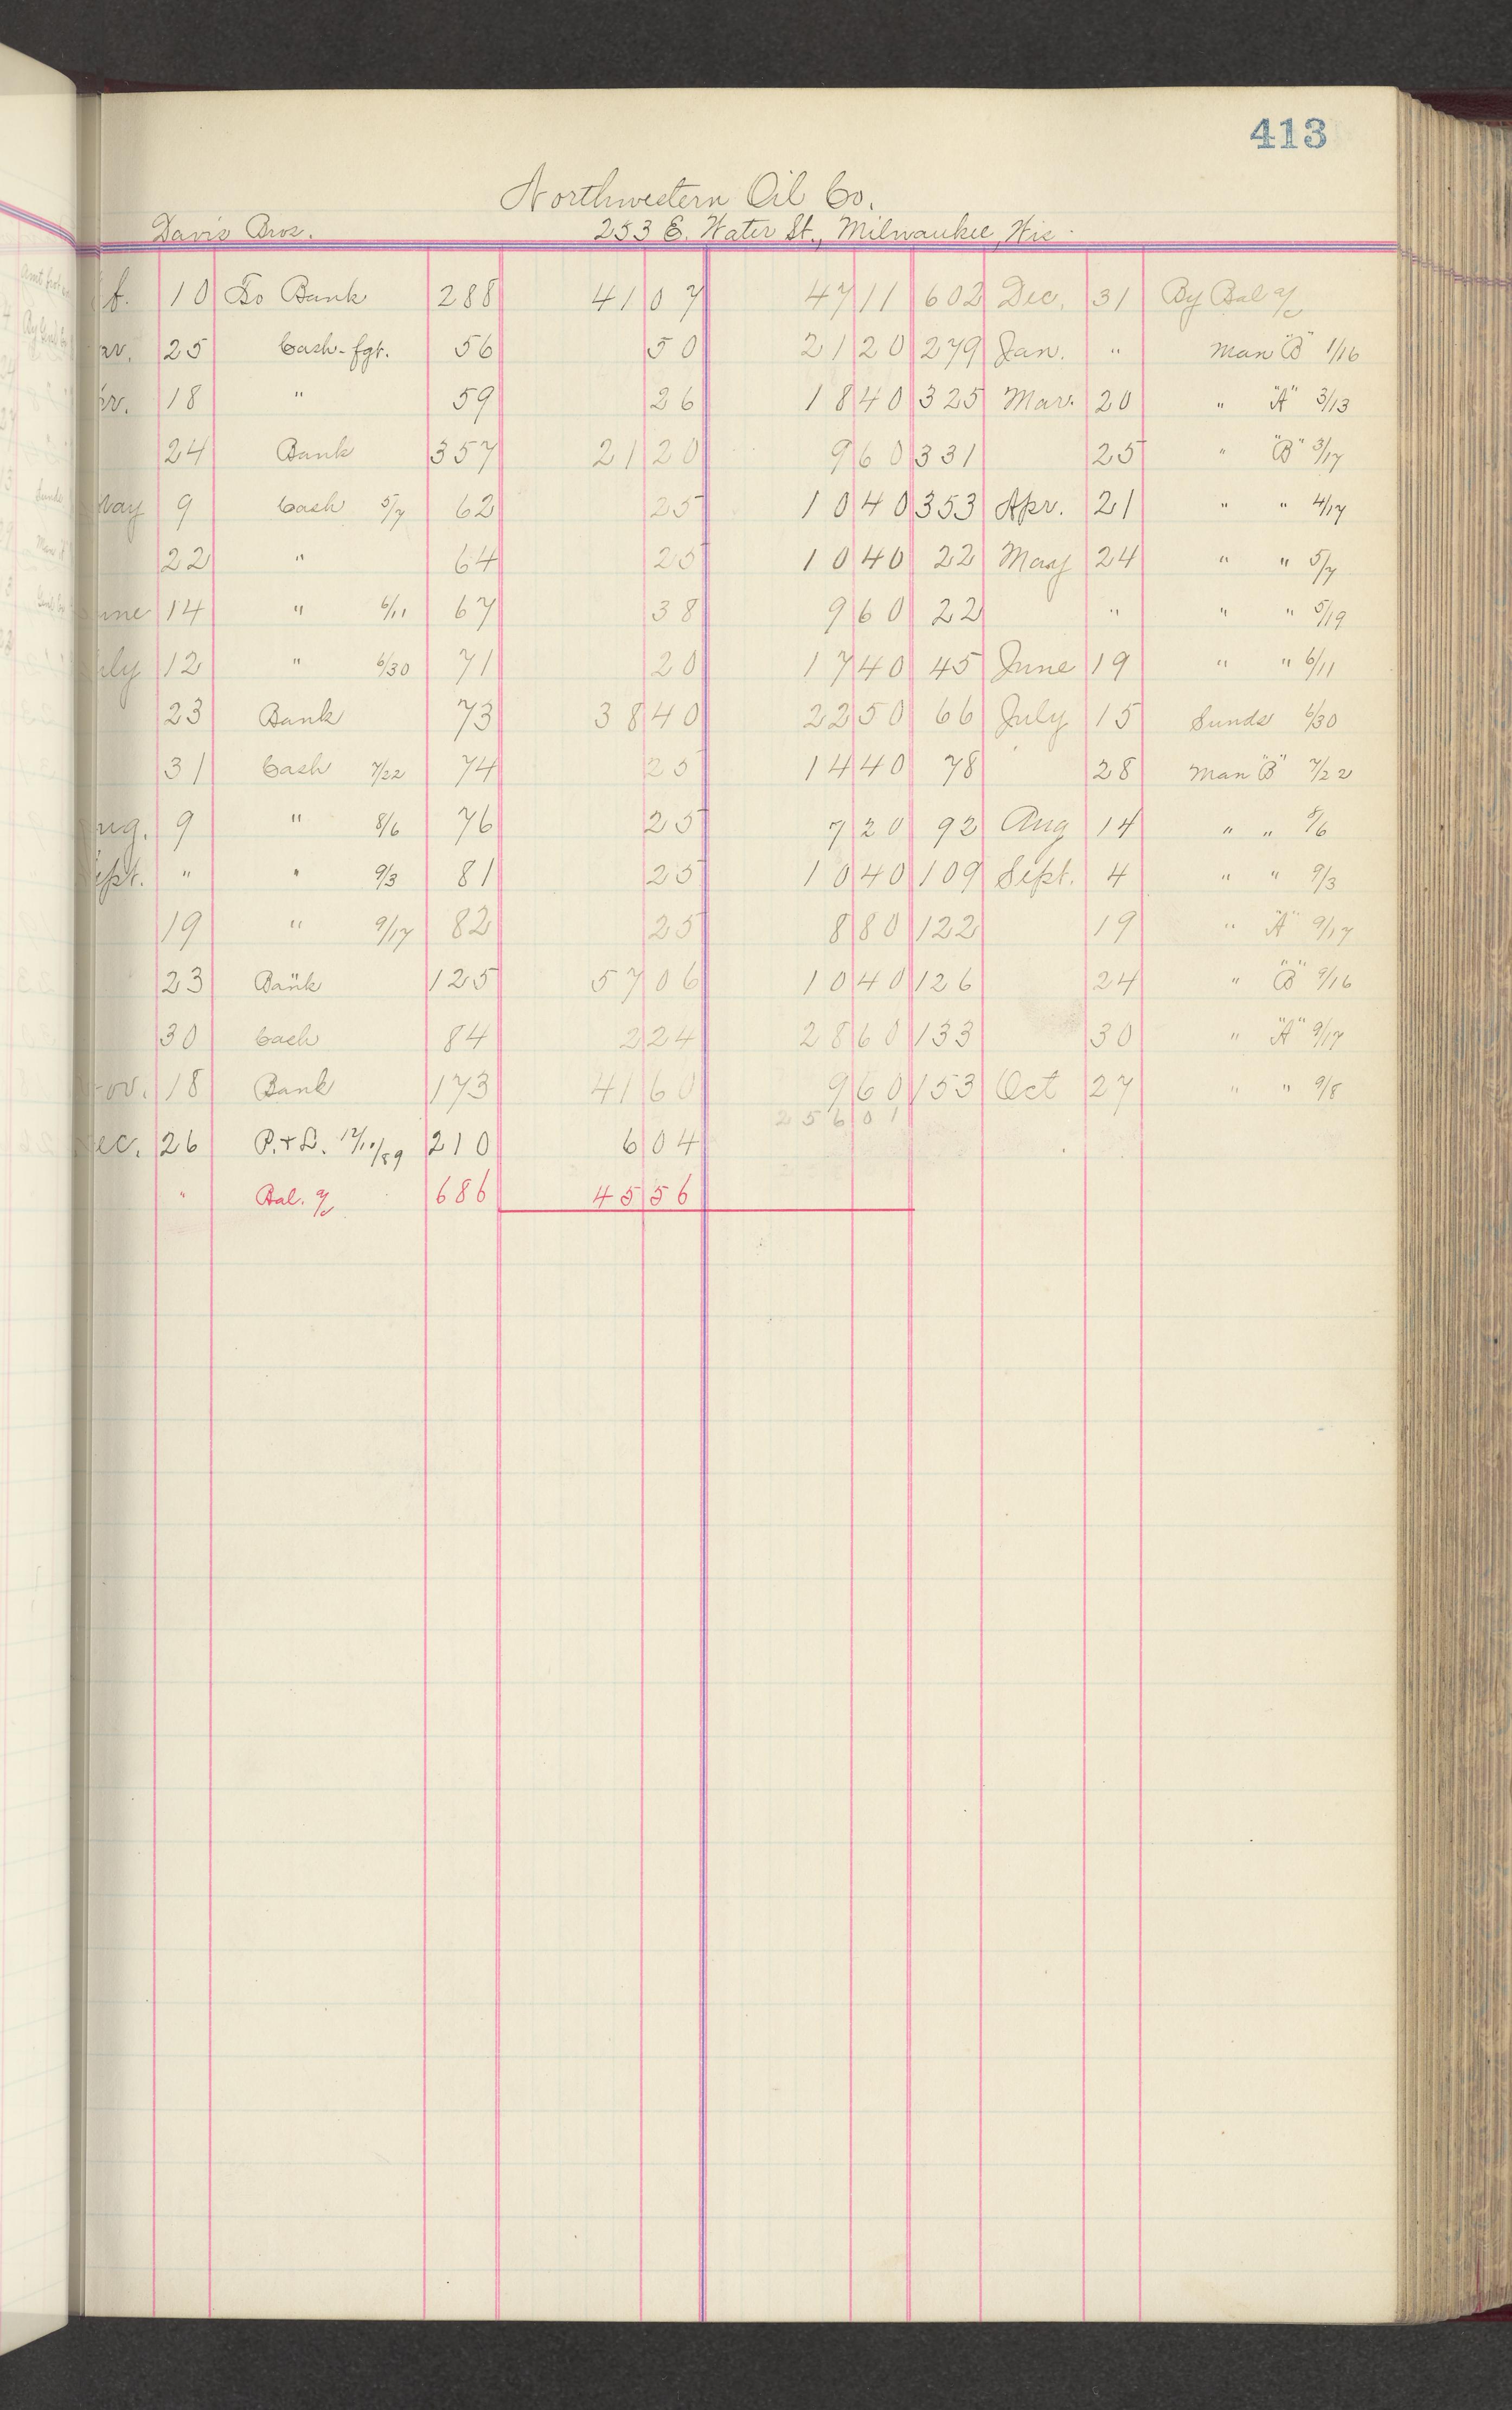 413
Northwestern Oil Co.
Davis Bros. 253 E. Water St., Milwaukee, Wis.
10 To Bank 288 41 07 47 11 602 Dec. 31 By Bal
25 Cash-fgt. 56 50 21 20 279 Jan. " Man "B" 1/16
18 " 59 26 18 40 325 Mar. 20 " "A" 3/13
24 Bank 357 21 20 9 60 331 25 " "B" 3/17
May 9 Cash 5/7 62 25 10 40 353 Apr. 21 " " 4/17
22 " 64 25 10 40 22 May 24 " " 5/7
June 14 " 6/11 67 38 9 60 22 " " " 5/19
July 12 " 6/30 71 20 17 40 45 June 19 " " 6/11
23 Bank 73 38 40 22 50 66 July 15 Sunds 6/30
31 Cash 7/22 74 25 14 40 78 28 Man "B" 7/22
Aug. 9 " 8/6 76 25 7 20 92 Aug 14 " " 8/6
Sept. " " 9/3 81 25 10 40 109 Sept. 4 " " 9/3
19 " 9/17 82 25 8 80 122 19 " "A" 9/17
23 Bank 125 57 06 10 40 126 24 " "B" 9/16
30 Cash 84 2 24 28 60 133 30 " "A" 9/17
Nov. 18 Bank 173 41 60 9 60 153 Oct 27 " " 9/8
256 01
Dec. 26 P. & L. 12/10/89 210 6 04
" Bal. 686 45 56